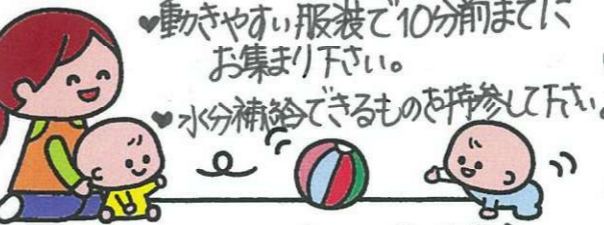 ♥動きやすい服装で10分前までに
お集まり下さい。
♥水分補給できるものを持参して下さい。